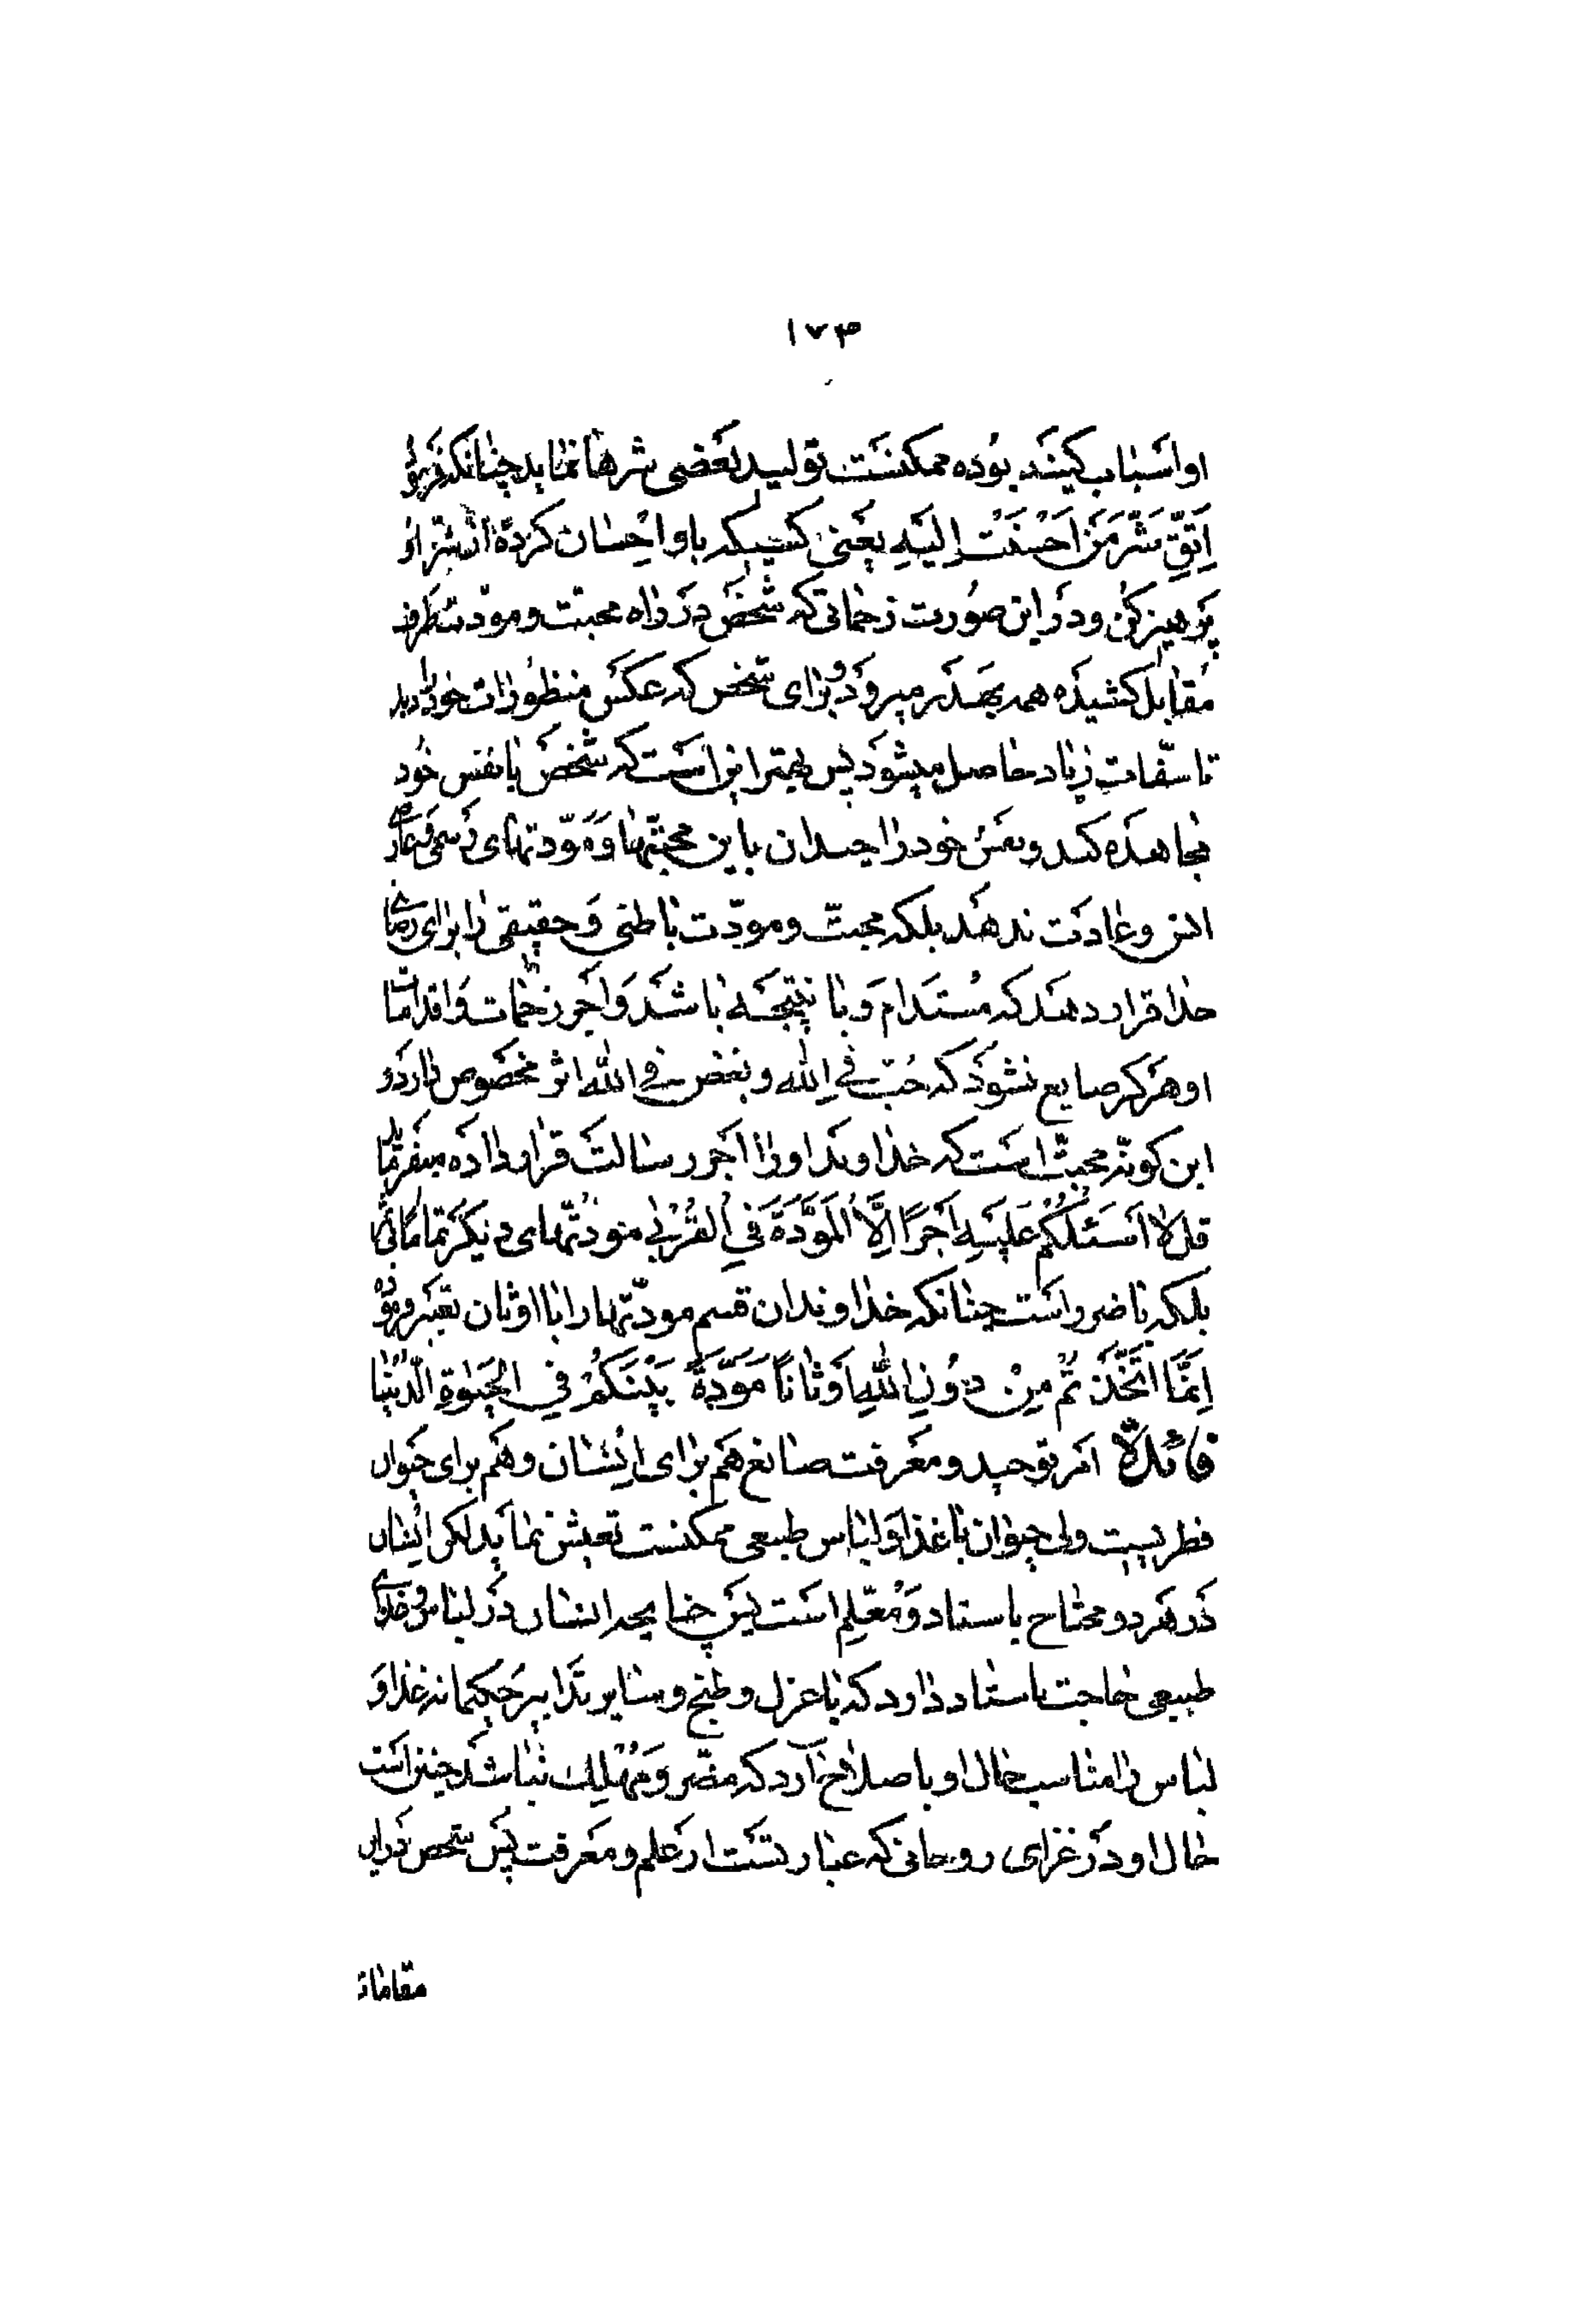 ۱۷۳
او اسباب کینه بوده ممکنست تولید بعضی شرها نماید چنانکه فرموده
اِتَّقِ شَرَّ مَنْ اَحْسَنْتَ اِلَیْهِ یعنی کسیکه باو احسان کردهٔ از شر او
پرهیز کن و در این صورت زحماتی که شخص در راه محبت و مودت طرف
مقابل کشیده همه بهدر میرود و برای شخص که عکس منظورات خود را دید
تاسّفات زیاد حاصل میشود پس بهتر این است که شخص با نفس خود
مجاهده کند و نفس خود را چندان باین محبتّها و مودّتهای رسمی و عاری
انس و عادت ندهد بلکه محبتّ و مودّت باطنی و حقیقی را برای رضای
خدا قرار دهد که مستدام و با نتیجه باشد و اجر زحمات و اقدامات
او هرگز ضایع نشود که حُبّ فی الله و بغض فی الله اثر مخصوص دارد و
این گونه محبتّ است که خداوند او را اجر رسالت قرار داده میفرماید
قل لا اَسْئَلُکُم عَلَیْهِ اَجْرًا اِلَّا الْمَوَدَّةَ فِی الْقُرْبی مودّتهای دیگر تماماً فانی
بلکه ناضرواست چنانکه خداوند ان قسم مودّتها را با اوثان تعبیر فرموده
اِنَّمَا اتَّخَذْتُمْ مِنْ دُونِ اللّٰهِ اَوْثَانًا مَوَدَّةَ بَیْنَکُمْ فِی الْحَیٰوةِ الدُّنْیَا
فائدة امر توحید و معرفت صانع هم برای انسان و هم برای حیوان
فطریست ولی حیوان با غذا و لباس طبیعی ممکنست تعیش نماید لکن انسان
در هر دو محتاج باستاد و معلّم است پس چنانچه انسان در لباس و غذای
طبیعی حاجت باستاد دارد که با غزل و طبخ و سایر تدابیر حکیمانه غذا و
لباس را مناسب حال او باصلاح آرد که مضر و مُهْلِک نباشد چنین است
حال او در غزای روحانی که عبارتست از علم و معرفت پس شخص در این
مقامات